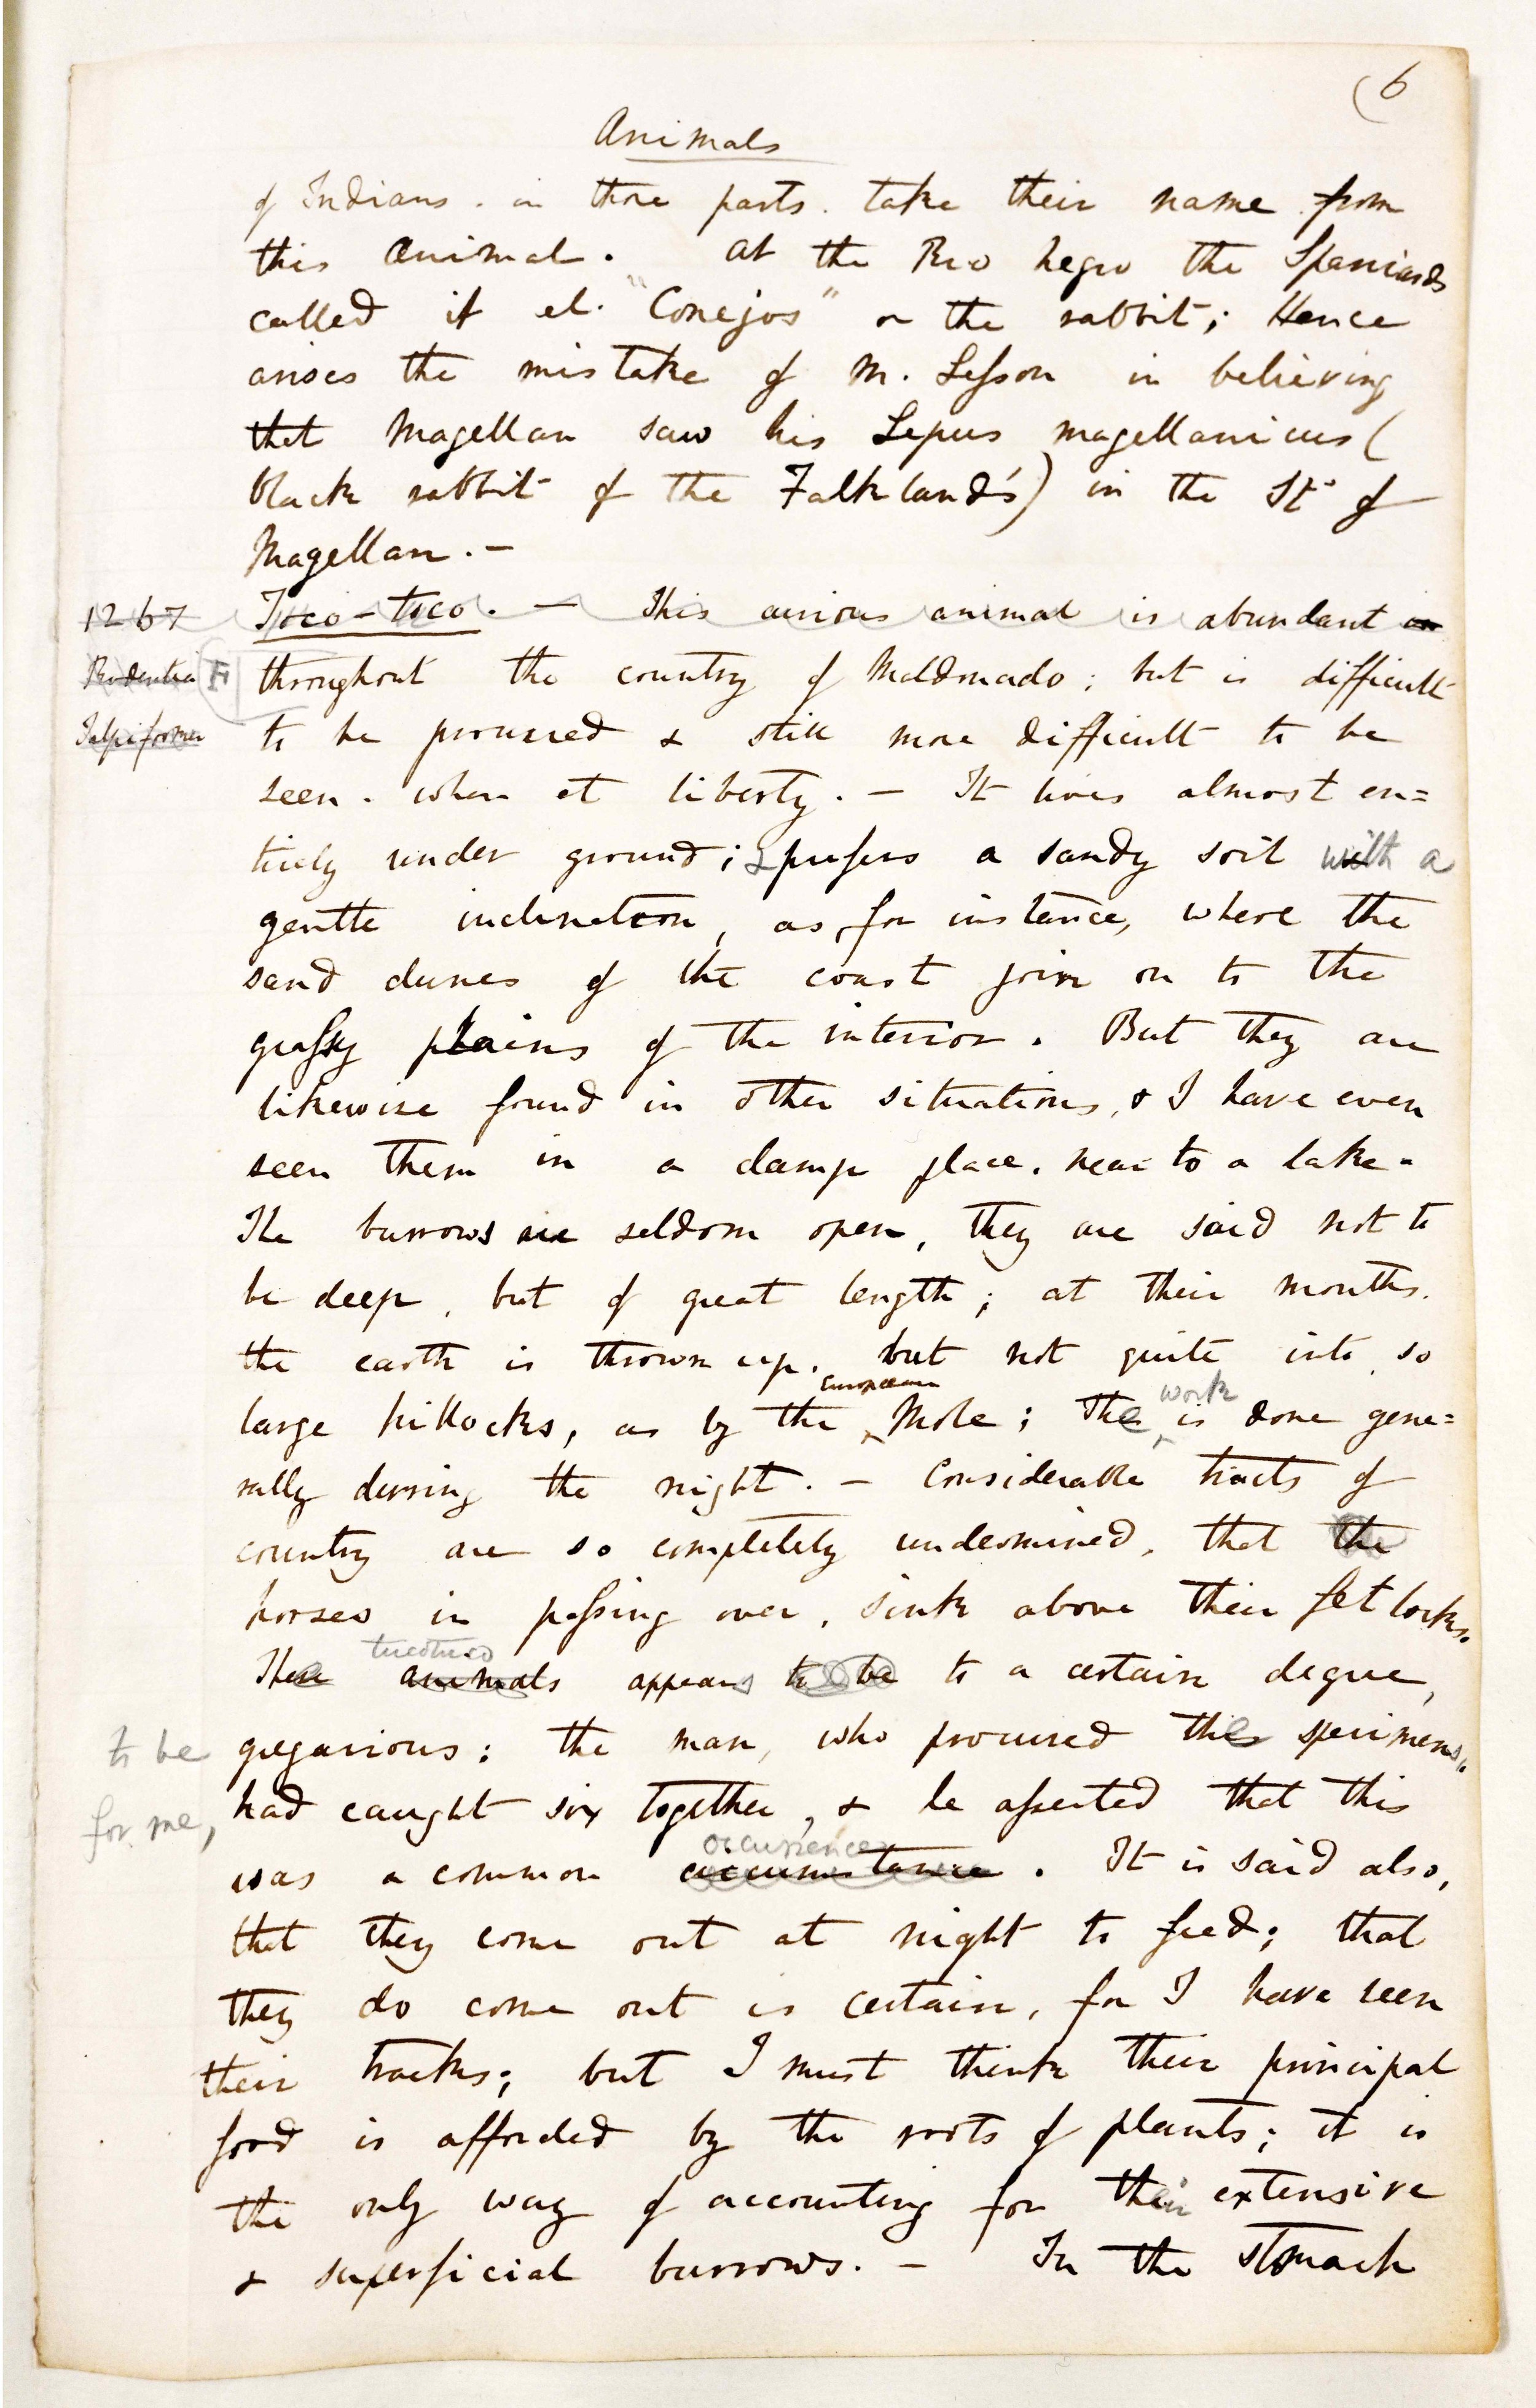 (6
Animals
of Indians. in those parts. take their name from
this animal. At the Rio Negro the Spaniards
called it el. "Conejos" or the rabbit; Hence
arises the mistake of M. Lesson in believing
that Magellan saw his Lepus magellanicus (
black rabbit of the Falkland's) in the St. of
Magellan. —
1267 Toco-toco. — This curious animal is abundant in
Rodentia F throughout the country of Maldonado; but is difficult
Talpiformes to be procured & still more difficult to be
seen. when at liberty. — It lives almost en=
tirely under ground; & prefers a sandy soil with a
gentle inclination, as, for instance, where the
sand dunes of the coast join on to the
grassy plains of the interior. But they are
likewise found in other situations, & I have even
seen them in a damp place. near to a lake.
The burrows are seldom open, they are said not to
be deep, but of great length; at their mouths.
the earth is thrown up. but not quite into so
European work
large hillocks, as by the Mole; The is done gene=
rally during the night. — Considerable tracts of
country are so completely undermined, that the
horses in passing over, sink above their fetlocks.
tucotuco
These animals appears to be to a certain degree,
to be gregarious: the man, who procured the specimens,
for me, had caught six together, & he asserted that this
occurrence
was a common circumstance. It is said also,
that they come out at night to feed; that
they do come out is certain, for I have seen
their tracks; but I must think their principal
food is afforded by the roots of plants; it is
the only way of accounting for their extensive
& superficial burrows. — In the stomach